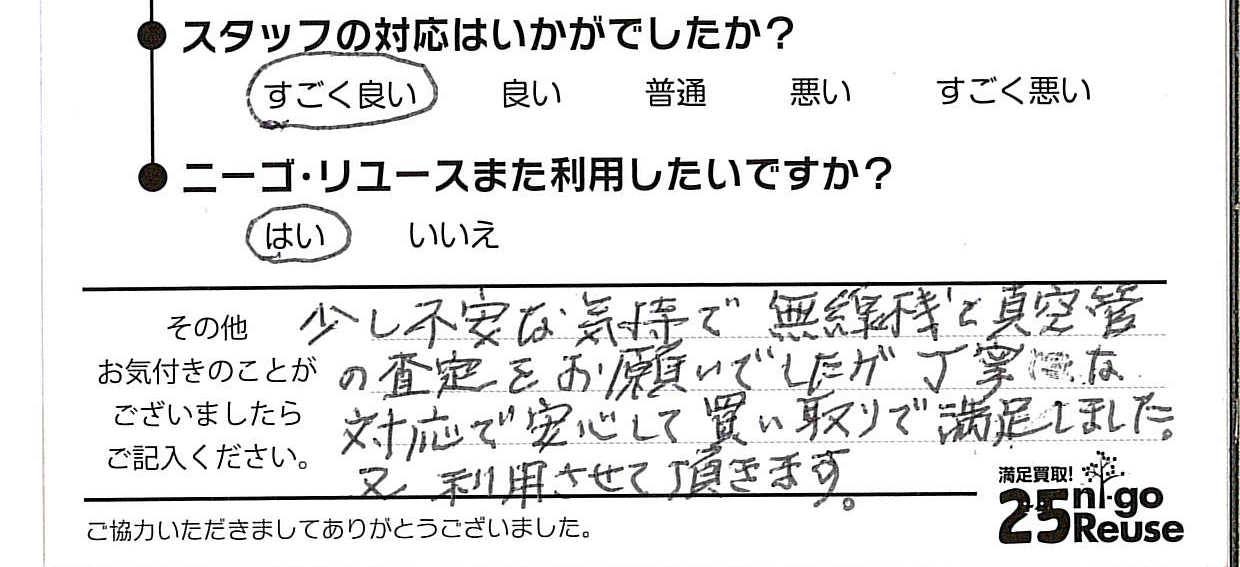 スタッフの対応はいかがでしたか？
すごく良い 良い 普通 悪い すごく悪い
ニーゴ・リユースまた利用したいですか？
はい いいえ
その他
お気付きのことが
ございましたら
ご記入ください。
少し不安な気持で 無線機と真空管
の査定をお願いでしたが 丁寧な
対応で安心して買い取りで満足しました。
又 利用させて頂きます。
満足買取!
25 ni-go
Reuse
ご協力いただきましてありがとうございました。